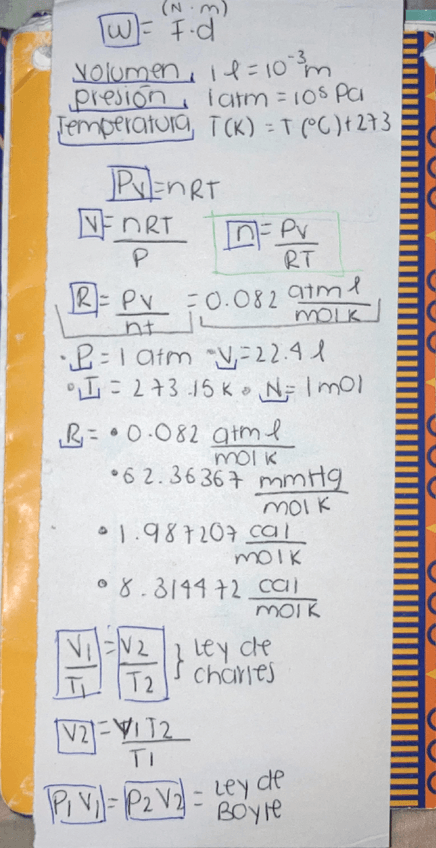 (N·m)
W = F·d
volumen, 1 l = 10⁻³m
presión, 1 atm = 10⁵ Pa
Temperatura, T(K) = T(°C)+273
PV = nRT
V = nRT/P n = PV/RT
R = PV/nt = 0.082 atm l/mol K
·P = 1 atm ·V = 22.4 l
·T = 273.15 K · N = 1 mol
R = ·0.082 atm l/mol K
·62.36367 mmHg/mol K
·1.987207 cal/mol K
·8.314472 cal/mol K
V1/T1 = V2/T2 } Ley de
Charles
V2 = V1T2/T1
P1 V1 = P2 V2 = Ley de
Boyle